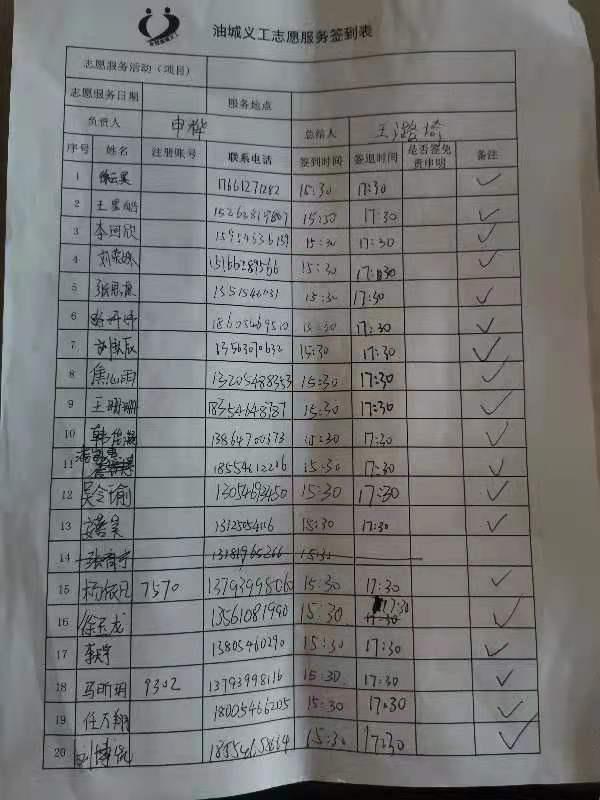 油城义工志愿服务签到表
志愿服务活动（项目）
志愿服务日期 服务地点
负责人 申桦 总结人 王璐琦
序号 姓名 注册账号 联系电话 签到时间 签退时间 是否签免责申明 备注
1 17661271282 15:30 17:30 ✓
2 王星皓 15262819807 15:30 17:30 ✓
3 李珂欣 15954636159 15:30 17:30 ✓
4 15166289566 15:30 17:30 ✓
5 15:30 17:30 ✓
6 18605469510 15:30 17:30 ✓
7 13563070632 15:30 17:30 ✓
8 焦心雨 13205488353 15:30 17:30 ✓
9 王珊珊 18354648787 15:30 17:30 ✓
10 13864700373 15:30 17:30 ✓
11 18554612216 15:30 17:30 ✓
12 吴令瑜 13054693450 15:30 17:30 ✓
13 15:30 17:30 ✓
14 13181965266 15:30
15 杨振凡 7570 13793998060 15:30 17:30 ✓
16 徐天龙 13561081990 15:30 17:30 ✓
17 13805460290 15:30 17:30 ✓
18 马昕玥 9302 13793998116 15:30 17:30 ✓
19 任万翔 18005466205 15:30 17:30 ✓
20 15:30 17:30 ✓